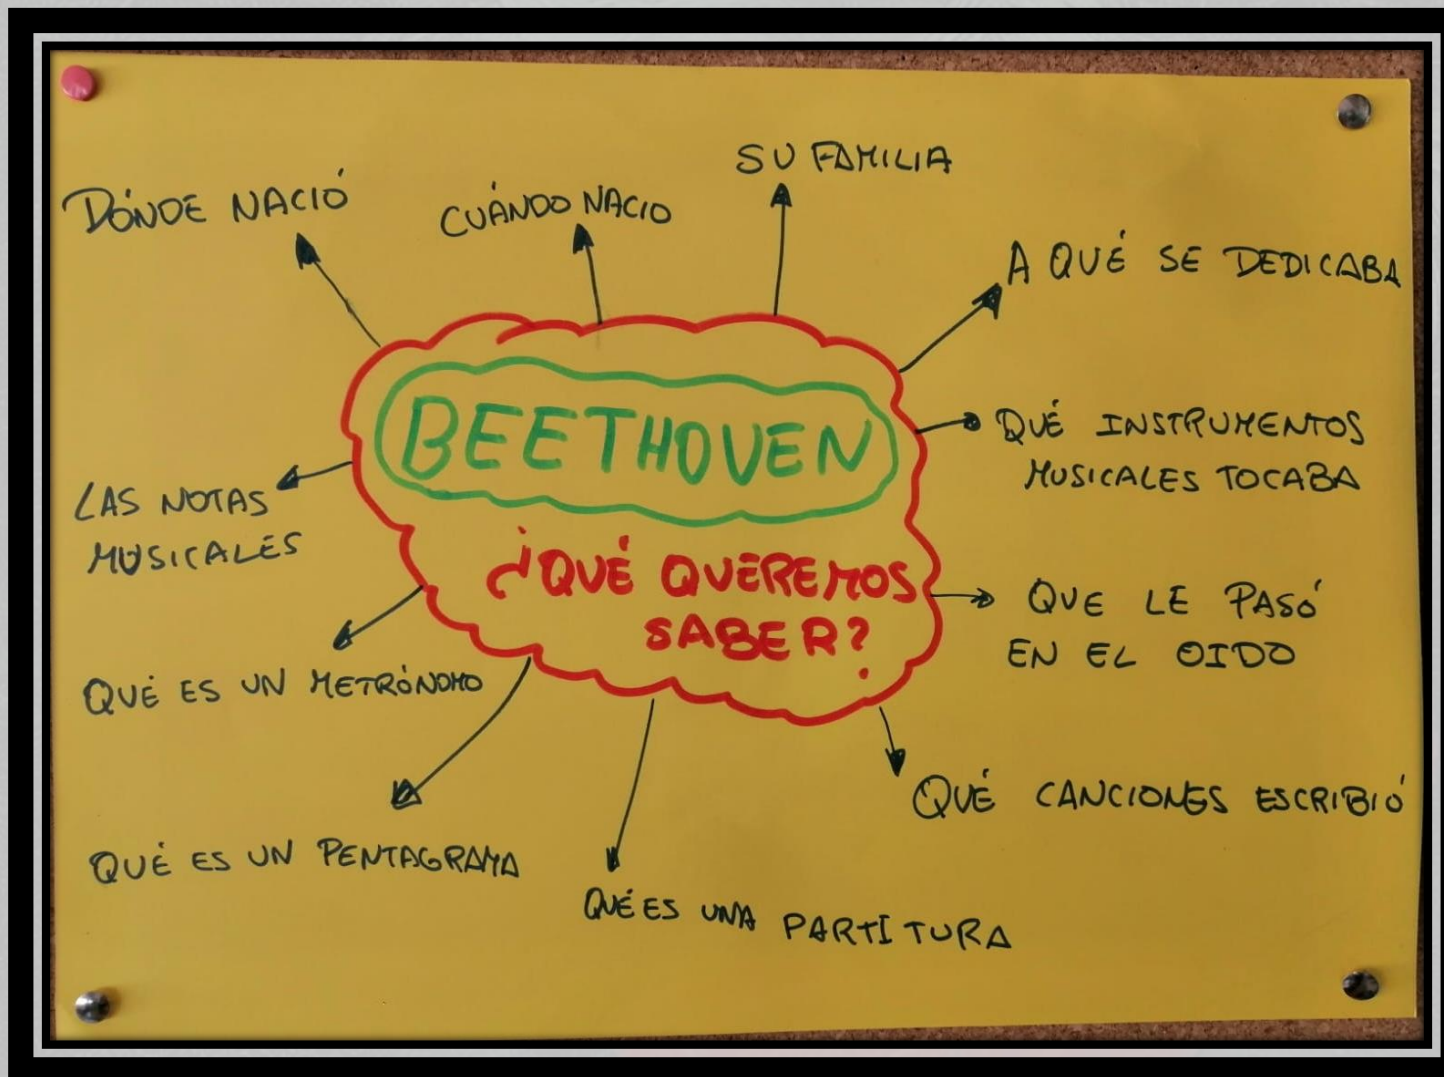 BEETHOVEN
¿QUÉ QUEREMOS
SABER?
DÓNDE NACIÓ
CUÁNDO NACIO
SU FAMILIA
A QUÉ SE DEDICABA
QUÉ INSTRUMENTOS
MUSICALES TOCABA
QUE LE PASÓ
EN EL OIDO
QUÉ CANCIONES ESCRIBIÓ
QUÉ ES UNA PARTITURA
QUÉ ES UN PENTAGRAMA
QUÉ ES UN METRÓNOMO
LAS NOTAS
MUSICALES